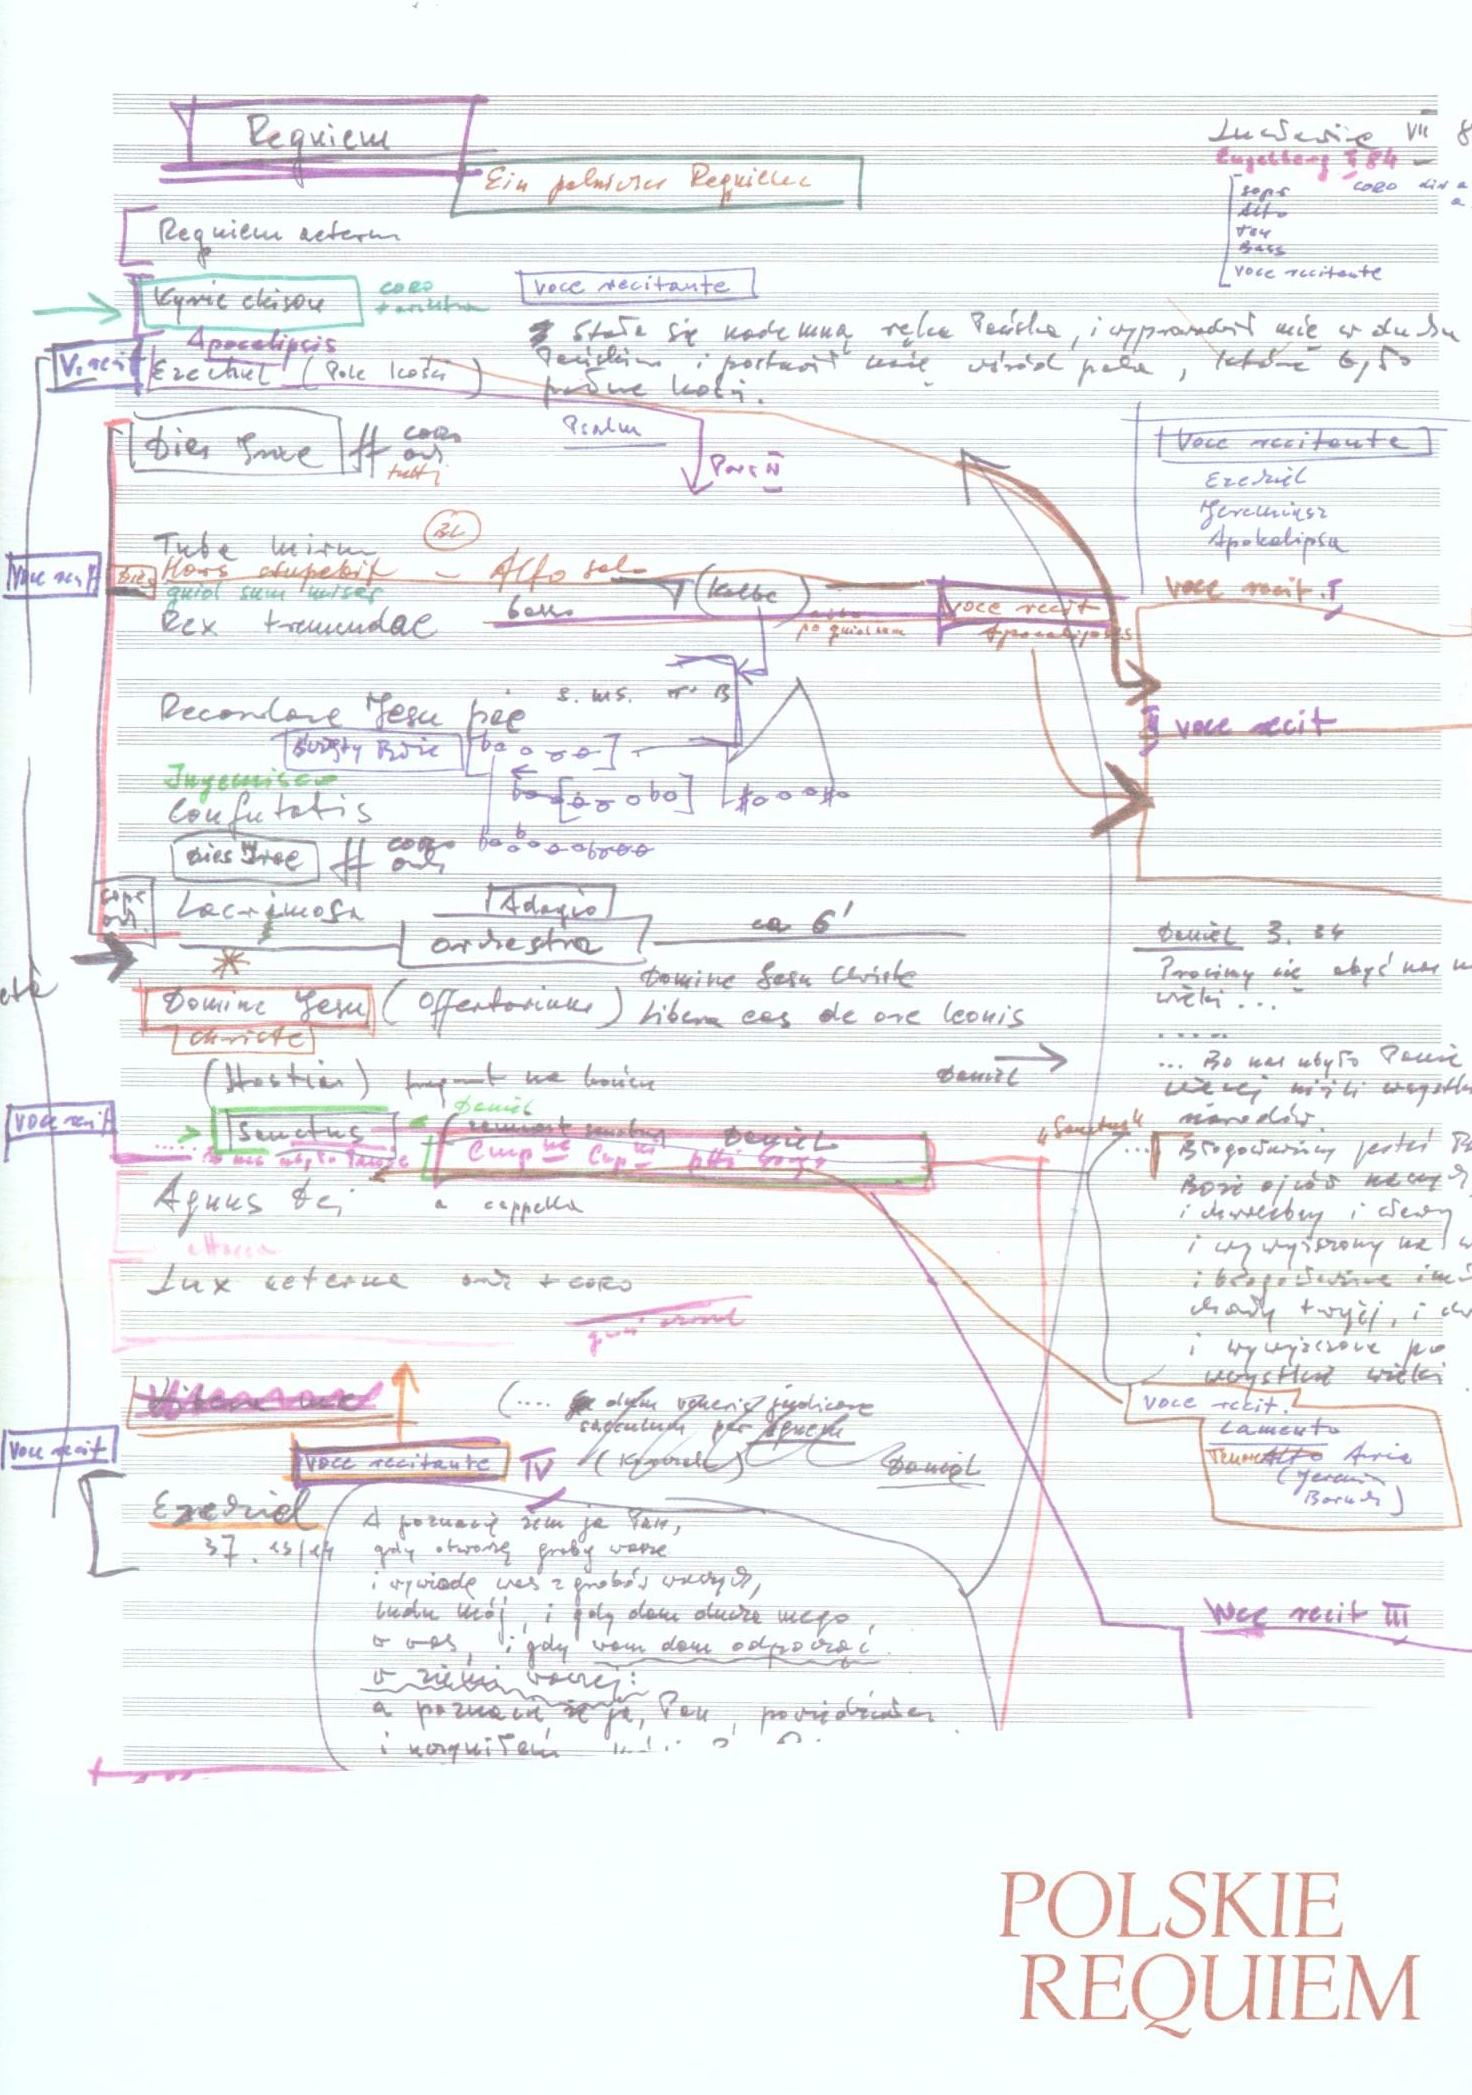 Requiem
Ein polnisches Requiem
VII 8
Engelberg I 84
sopr
Alto
Ten
Bass
voce recitante
coro
Requiem aetern
Kyrie eleison
coro
voce recitante
Stała się nade mną ręka Pańska, i wyprowadził mię w duchu
Pańskim i postawił mię wśród pola, które było
pełne kości.
Apocalipsis
V. recit
Ezechiel (Pole kości)
Dies Irae ff coro
ork
tutti
Psalm
Pars II
Voce recitante
Ezechiel
Jeremiasz
Apokalipsa
Tuba mirum
Voce recit
Mors stupebit - Alto solo
quid sum miser
Rex tremendae
basso
(Kolbe)
voce recit
Apocalipsis
po quid sum
voce recit. I
Recordare Jesu pie
S. MS. T. B
Święty Boże
II voce recit
Ingemisco
Confutatis
Dies Irae ff coro
ork
Lacrimosa
Adagio
orchestra
ca 6'
Domine Jesu (Offertorium)
Christe
Domine Jesu Christe
libera eas de ore leonis
Daniel 3. 34
Prosimy cię abyć nas na
wieki...
(Hostias) fragment na końcu
Daniel
... Bo nas ubyło Panie
więcej niźli wszystkich
narodów.
Voce recit
Sanctus
Daniel
Daniel
"Sanctus"
... Bo nas ubyło Panie
Błogosławiony jesteś
Boże ojców naszych
i chwalebny i
i wywyższony na
i błogosławione imię
chwały twojej, i
i wywyższone po
wszystkie wieki
Agnus Dei
a cappella
attacca
Lux aeterna ork + coro
Libera me
(.... dum veneris judicare
saeculum per ignem
Voce recit
voce recitante IV
Daniel
voce recit.
Lamento
Tenor Alto Aria
(Jeremi
Baruch)
Ezechiel
37. 13/14
A poznacie żem ja Pan,
gdy otworzę groby wasze
i wywiodę was z grobów waszych,
ludu mój, i gdy dam ducha mego
w was, i gdy wam dam odpocząć
w ziemi waszej:
a poznacie że ja, Pan, powiedziałem
i uczyniłem
Voce recit III
POLSKIE
REQUIEM